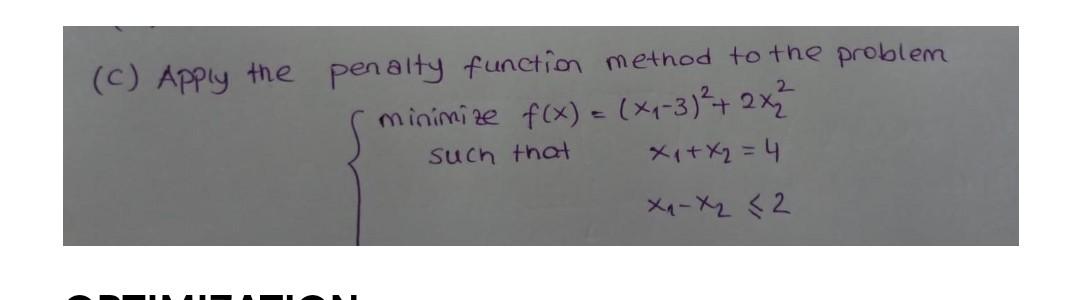 (c) Apply the penalty function method to the problem
minimize f(x) = (x₁-3)²+ 2x₂²
such that x₁+x₂ = 4
x₁-x₂ ⩽ 2
OPTIMIZATION